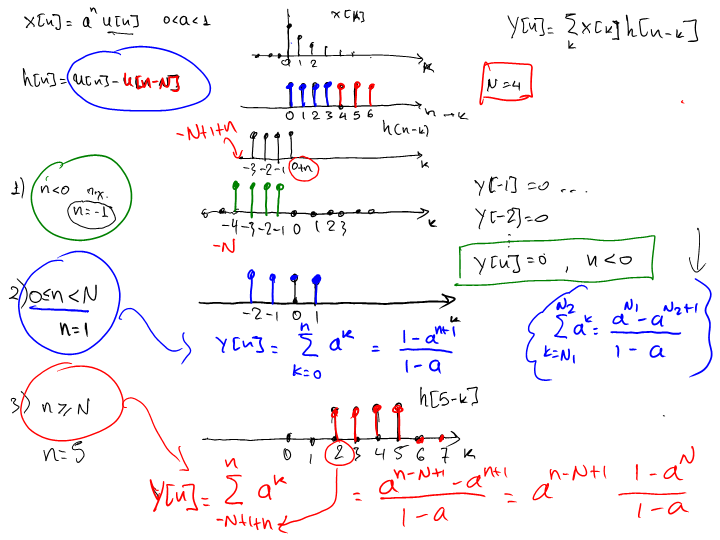 x[n] = aⁿ u[n]   0<a<1
x[k]
y[n] = Σ_k x[k] h[n-k]
0 1 2
k
h[n] = u[n] - u[n-N]
N=4
0 1 2 3 4 5 6
n → k
h(n-k)
-N+1+n
-3 -2 -1 0+n
k
1) n<0
n=-1
-4 -3 -2 -1 0 1 2 3
k
-N
y[-1] = 0 ...
y[-2] = 0
⋮
y[n] = 0 , n<0
2) 0≤n<N
n=1
-2 -1 0 1
k
y[n] = Σ_{k=0}^{n} a^k = (1-a^{n+1})/(1-a)
{ Σ_{k=N₁}^{N₂} a^k = (a^{N₁} - a^{N₂+1})/(1-a) }
3) n≥N
n=5
h[5-k]
0 1 2 3 4 5 6 7 k
y[n] = Σ_{-N+1+n}^{n} a^k = (a^{n-N+1} - a^{n+1})/(1-a) = a^{n-N+1} (1-a^N)/(1-a)